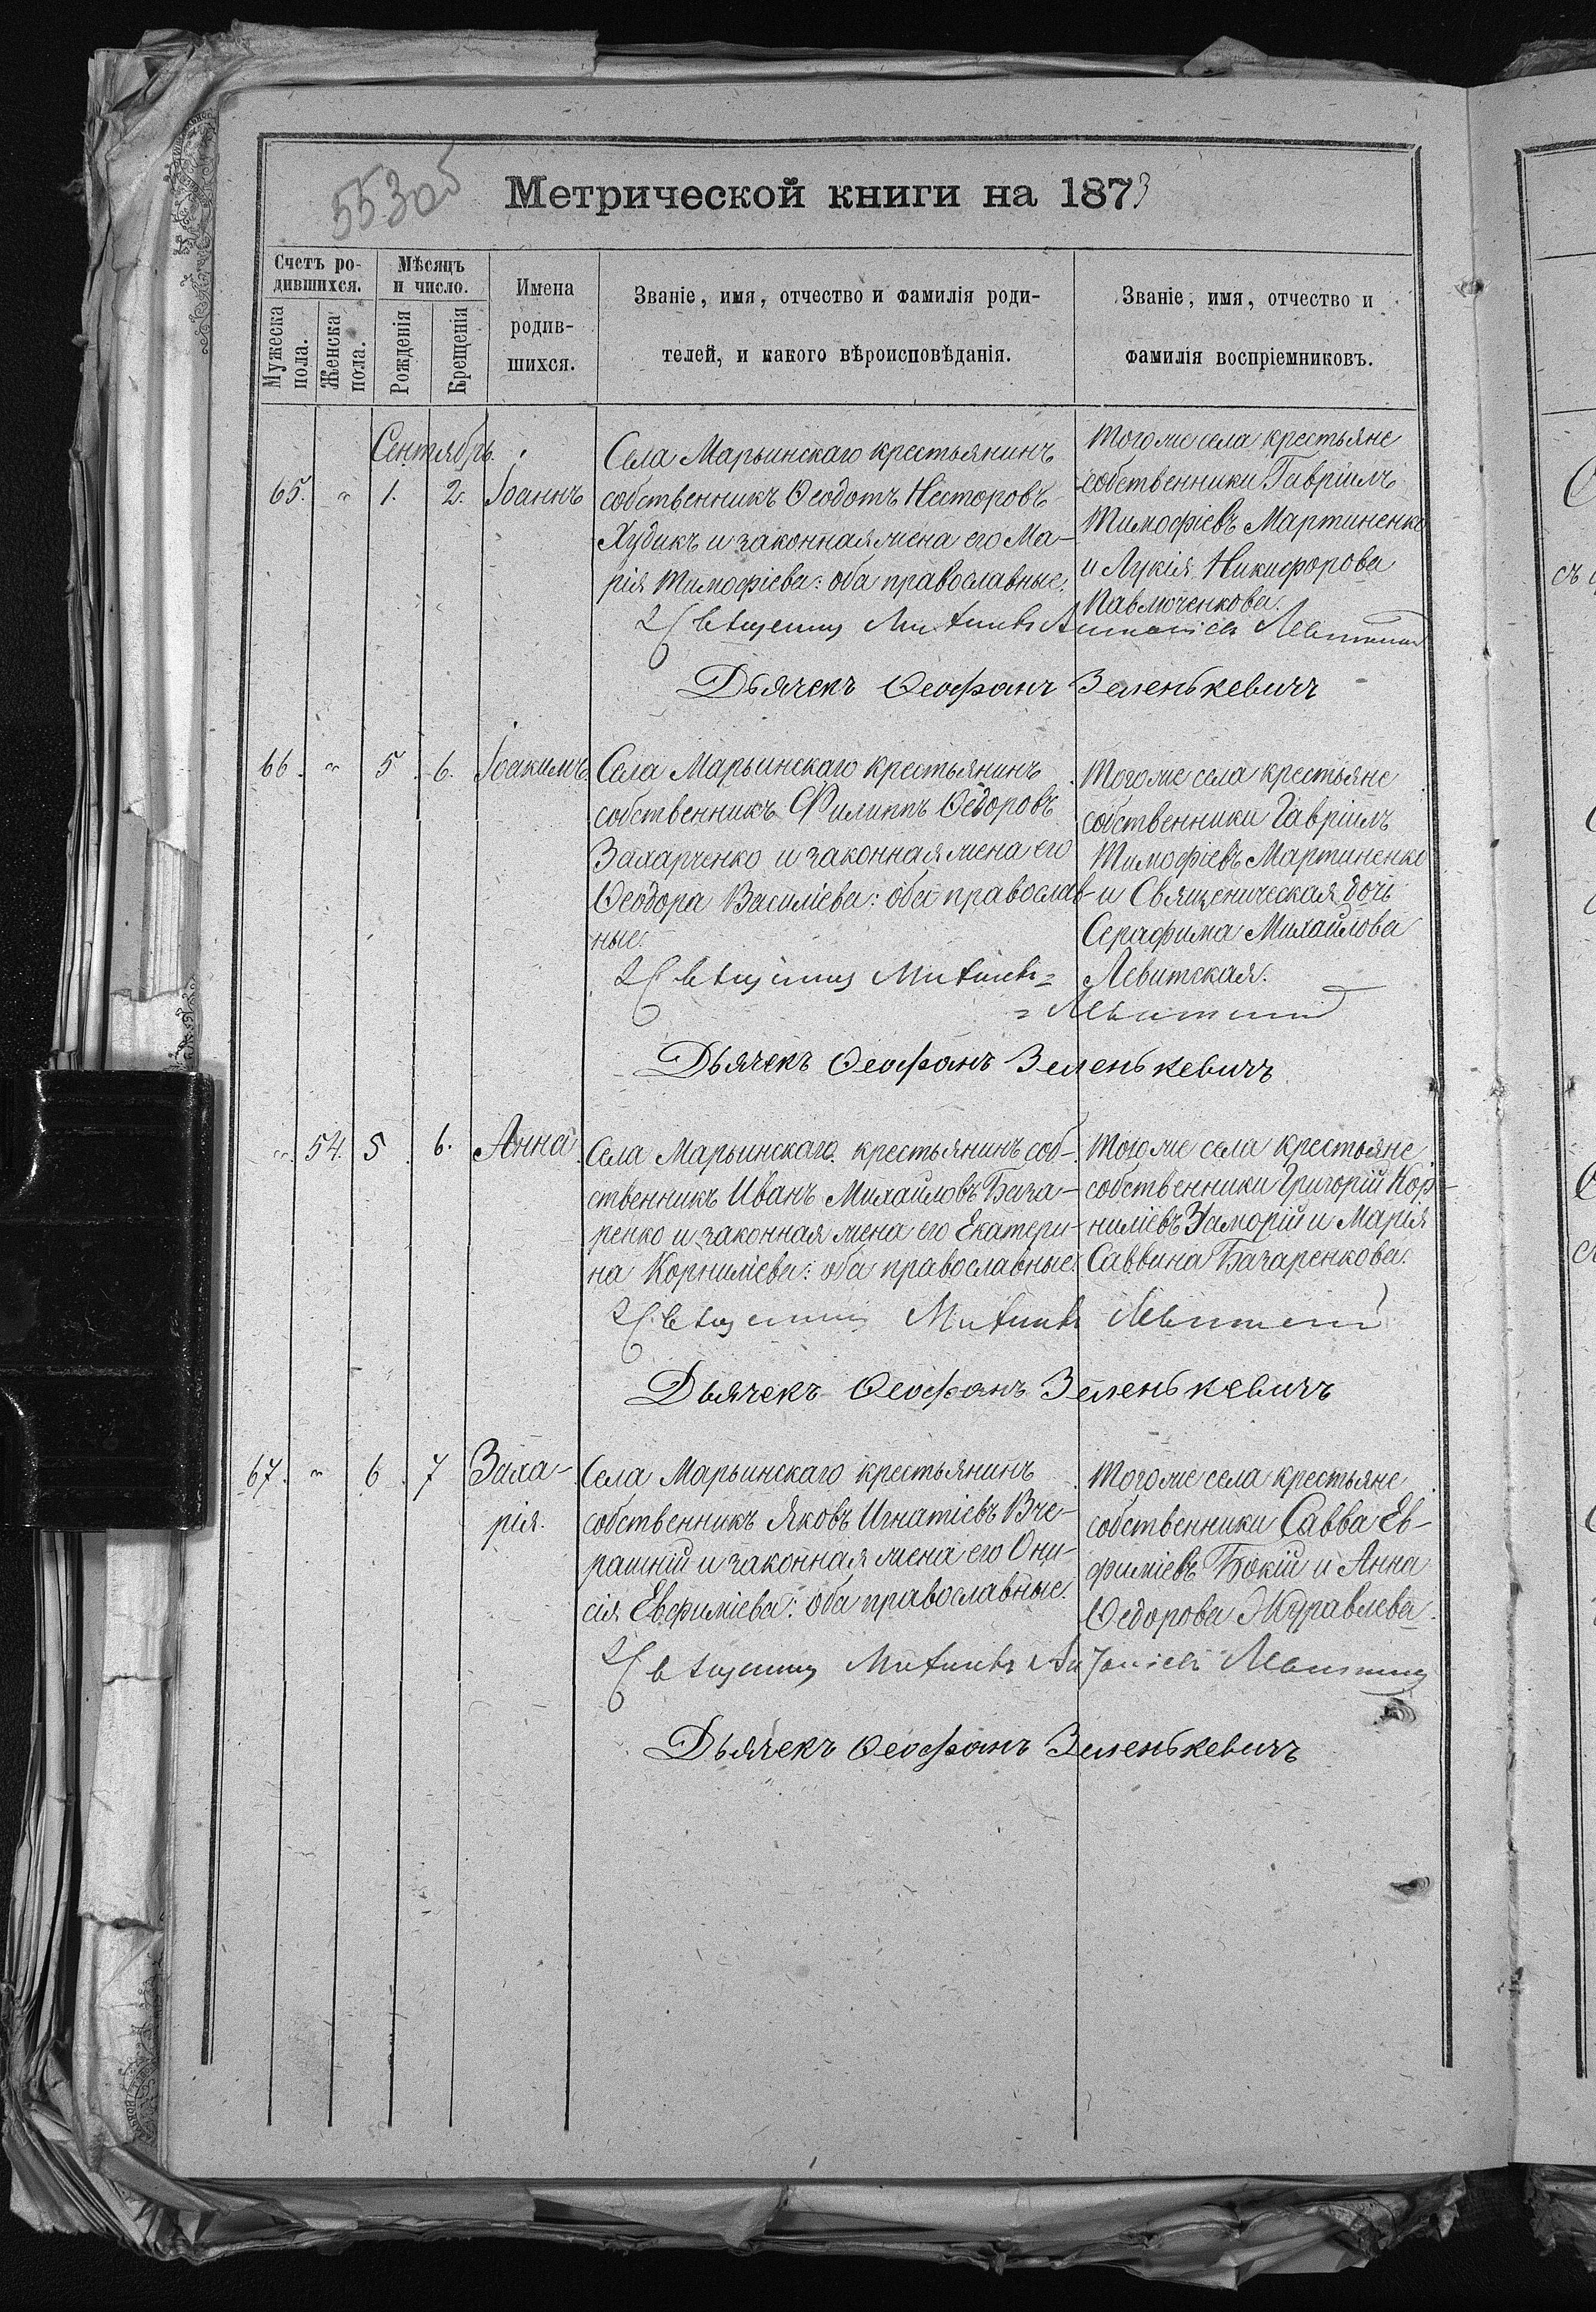 553об
Метрической книги на 1873
Счетъ ро-
дившихся.
Мѣсяцъ
и число.
Мужеска
пола.
Женска
пола.
Рожденія
Крещенія
Имена
родив-
шихся.
Званіе, имя, отчество и фамилія роди-
телей, и какого вѣроисповѣданія.
Званіе, имя, отчество и
фамилія воспріемниковъ.
Сентябрь.
65. " 1. 2. Іоаннъ
Села Марьинскаго крестьянинъ
собственникъ Ѳеодотъ Несторовъ
Худикъ и законная жена его Ма-
рія Тимофіева: оба православные.
Тогоже села крестьяне
собственники Гавріилъ
Тимофіевъ Мартиненко
и Лукія Никифорова
Павлюченкова.
Священникъ Митрофанъ Левитскій
Дьячекъ Ѳеофанъ Зеленькевичъ
66. " 5. 6. Іоакимъ
Села Марьинскаго крестьянинъ
собственникъ Филиппъ Ѳедоровъ
Захарченко и законная жена его
Ѳеодора Василіева: оба православ-
ные.
Тогоже села крестьяне
собственники Гавріилъ
Тимофіевъ Мартиненко
и Священическая дочь
Серафима Михайлова
Левитская.
Священникъ
Левитскій
Дьячекъ Ѳеофанъ Зеленькевичъ
" 54. 5. 6. Анна
Села Марьинскаго крестьянинъ соб-
ственникъ Иванъ Михайловъ База-
ренко и законная жена его Екатери-
на Корниліева: оба православные.
Тогоже села крестьяне
собственники Григорій Кор-
ниліевъ Заморій и Марія
Саввина Базаренкова.
Священникъ Левитскій
Дьячекъ Ѳеофанъ Зеленькевичъ
67. " 6. 7 Заха-
рія.
Села Марьинскаго крестьянинъ
собственникъ Яковъ Игнатіевъ Вче-
рашній и законная жена его Они-
сія Евфиміева: оба православные.
Тогоже села крестьяне
собственники Савва Ев-
фиміевъ Бокій и Анна
Ѳедорова Журавлева.
Священникъ Левитскій
Дьячекъ Ѳеофанъ Зеленькевичъ